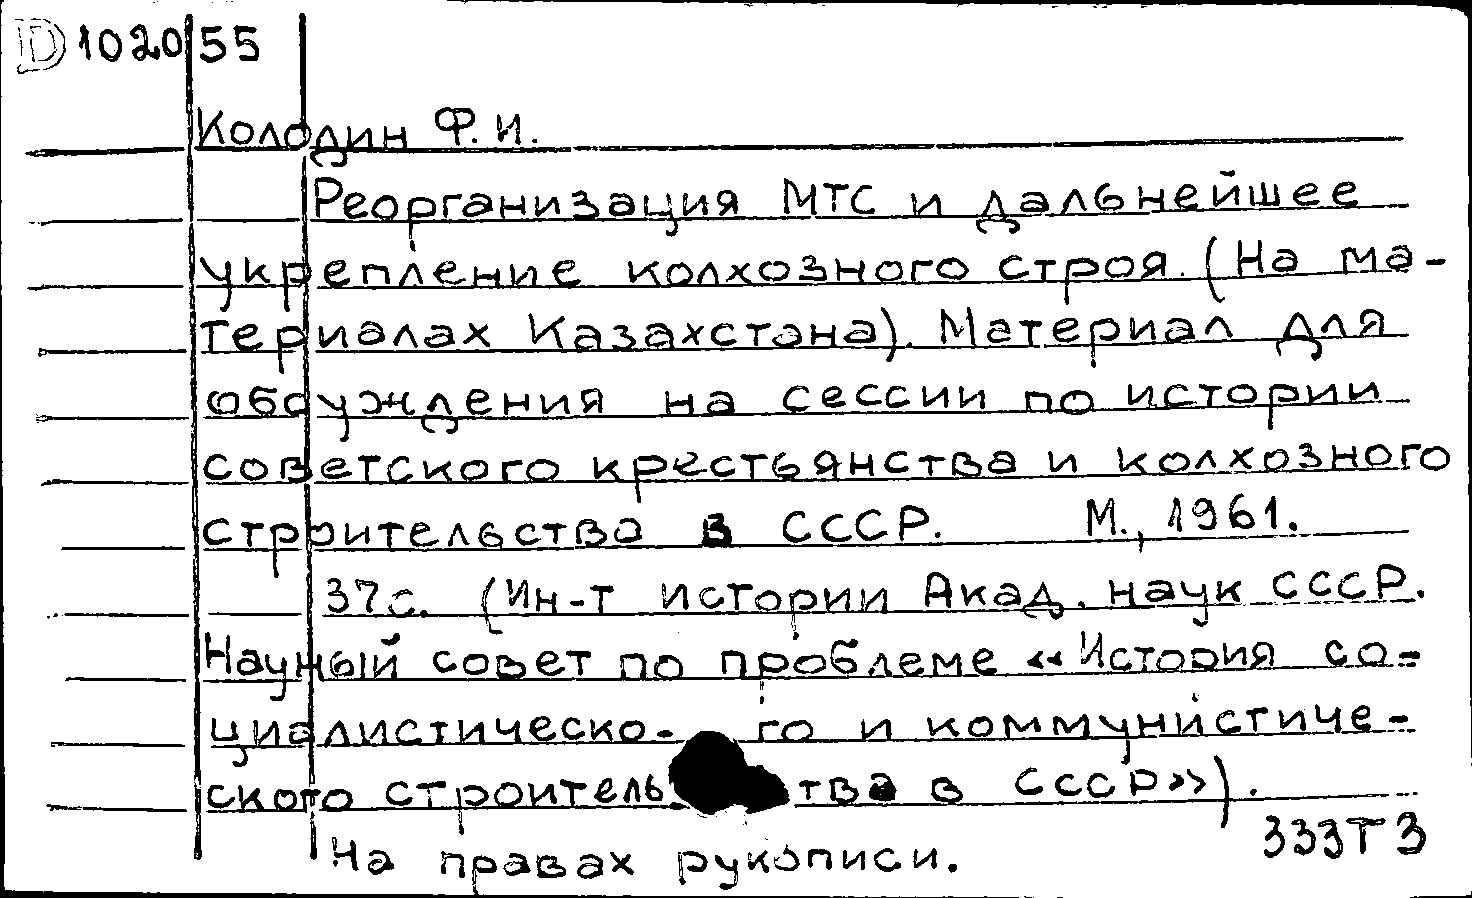 D 1020/55
Колодин Ф. И.
Реорганизация МТС и дальнейшее
укрепление колхозного строя. (На ма-
териалах Казахстана). Материал для
обсуждения на сессии по истории
советского крестьянства и колхозного
строительства в СССР. М., 1961.
37с. (Ин-т истории Акад. наук СССР.
Научный совет по проблеме «История со-
циалистическо- го и коммунистиче-
ского строительства в СССР»).
На правах рукописи.
333Т3